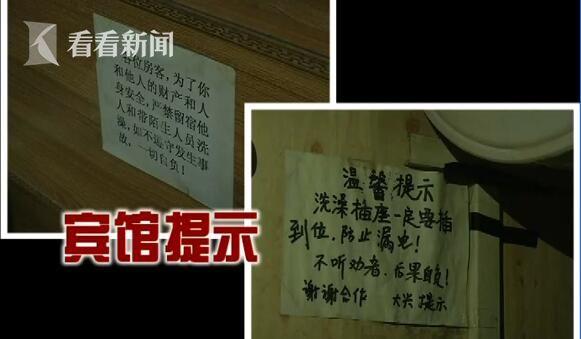 看看新闻
各位房客,为了你
和他人的财产和人
身安全,严禁留宿他
人和带陌生人员洗
澡,如不遵守发生事
故,一切自负!
宾馆提示
温馨提示
洗澡插座一定要插
到位,防止漏电!
不听劝者,后果自负!
谢谢合作 大兴提示